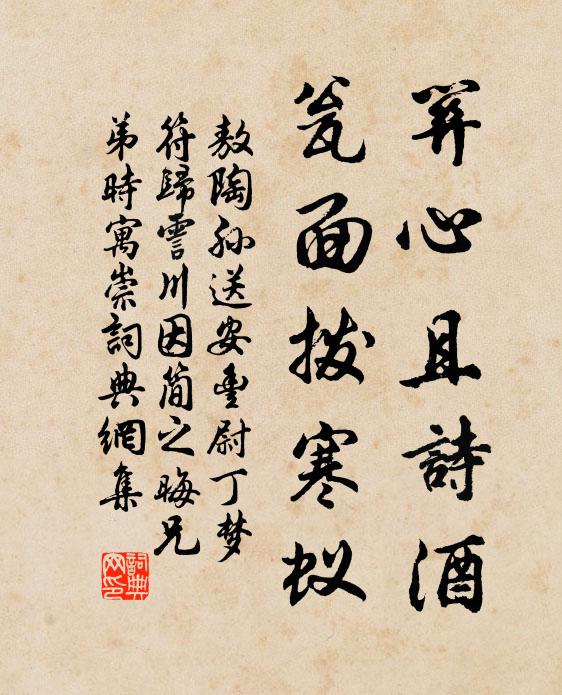 心且詩酒
瓮面拨寒蚁
敖陶孙送安豐尉丁梦
符歸霅川因简之晦兄
弟時寓崇詞典網集
詞典网印